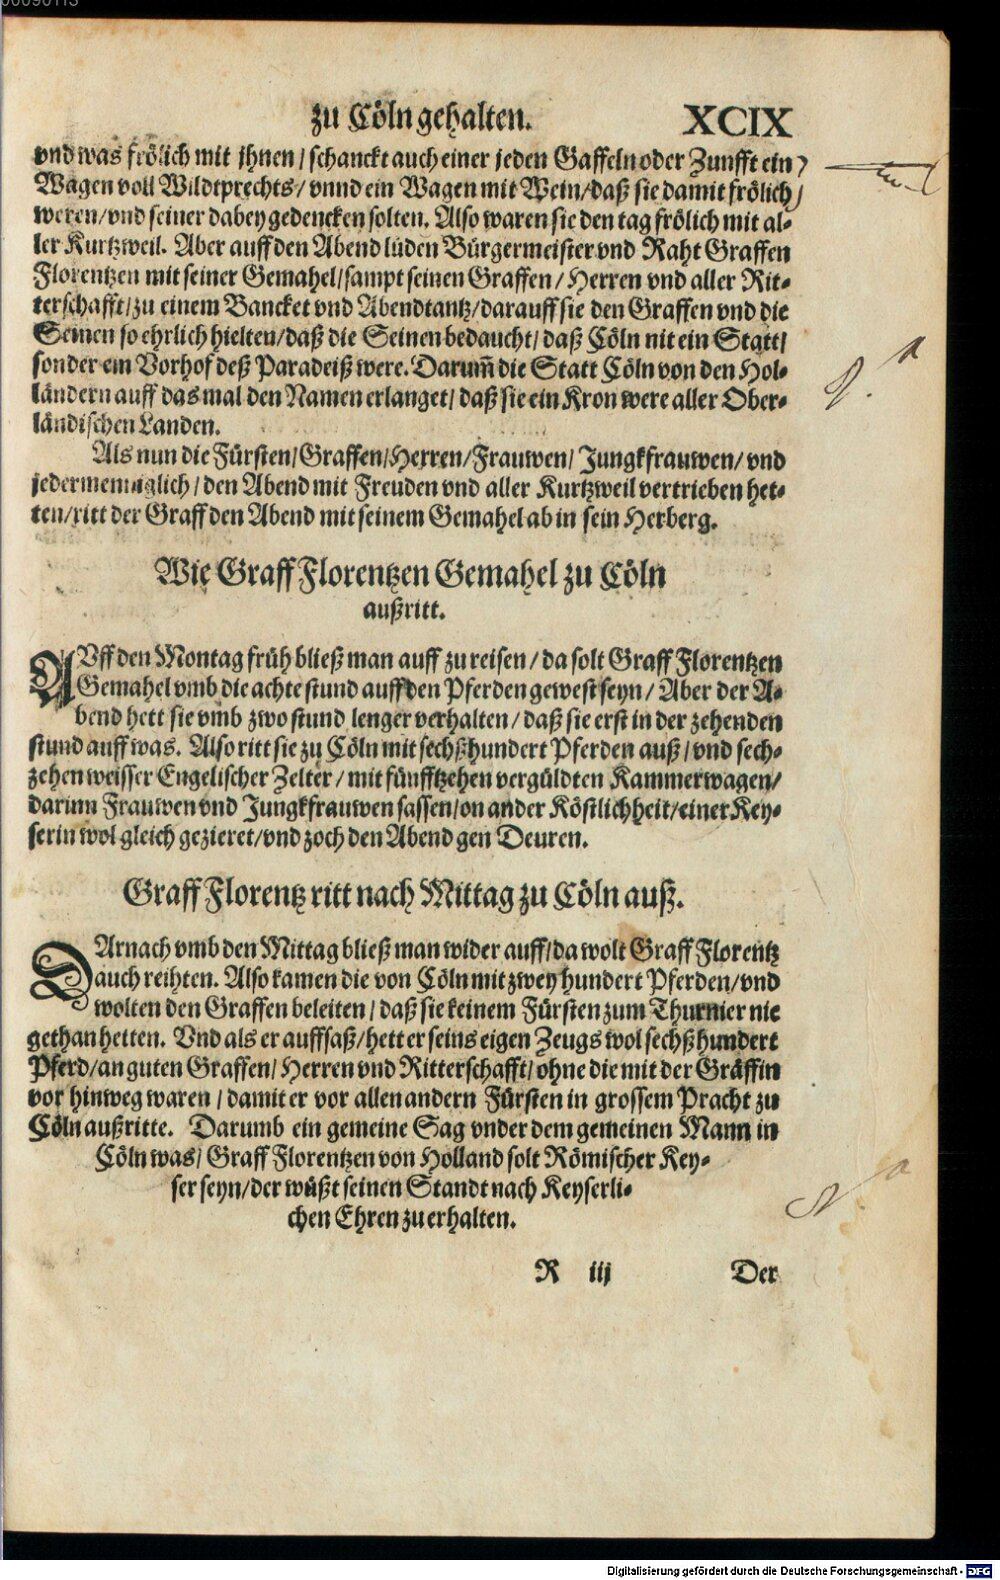 zu Cöln gehalten. XCIX
vnd was frölich mit jhnen / schanckt auch einer jeden Gaffeln oder Zunfft ein
Wagen voll Wildtprechts / vnnd ein Wagen mit Wein / daß sie damit frölich
weren / vnd seiner dabey gedencken solten. Also waren sie den tag frölich mit al-
ler Kurtzweil. Aber auff den Abend luden Bürgermeister vnd Raht Graffen
Florentzen mit seiner Gemahel / sampt seinen Graffen / Herren vnd aller Rit-
terschafft / zu einem Bancket vnd Abendtantz / darauff sie den Graffen vnd die
Seinen so ehrlich hielten / daß die Seinen bedaucht / daß Cöln nit ein Statt /
sonder ein Vorhof deß Paradeiß were. Darum̃ die Statt Cöln von den Hol-
ländern auff das mal den Namen erlanget / daß sie ein Kron were aller Ober-
ländischen Landen.
Als nun die Fürsten / Graffen / Herren / Frauwen / Jungkfrauwen / vnd
jedermenniglich / den Abend mit Freuden vnd aller Kurtzweil vertrieben het-
ten / ritt der Graff den Abend mit seinem Gemahel ab in sein Herberg.
Wie Graff Florentzen Gemahel zu Cöln
außritt.
AVff den Montag früh bließ man auff zu reisen / da solt Graff Florentzen
Gemahel vmb die achte stund auff den Pferden gewest seyn / Aber der A-
bend hett sie vmb zwo stund lenger verhalten / daß sie erst in der zehenden
stund auff was. Also ritt sie zu Cöln mit sechßhundert Pferden auß / vnd sech-
zehen weisser Engelischer Zelter / mit fünfftzehen vergüldten Kammerwagen /
darinn Frauwen vnd Jungkfrauwen sassen / on ander Köstlichheit / einer Key-
serin wol gleich gezieret / vnd zoch den Abend gen Deuren.
Graff Florentz ritt nach Mittag zu Cöln auß.
DArnach vmb den Mittag bließ man wider auff / da wolt Graff Florentz
auch reihten. Also kamen die von Cöln mit zwey hundert Pferden / vnd
wolten den Graffen beleiten / daß sie keinem Fürsten zum Thurnier nie
gethan hetten. Vnd als er auffsaß / hett er seins eigen Zeugs wol sechßhundert
Pferd / an guten Graffen / Herren vnd Ritterschafft / ohne die mit der Gräffin
vor hinweg waren / damit er vor allen andern Fürsten in grossem Pracht zu
Cöln außritte. Darumb ein gemeine Sag vnder dem gemeinen Mann in
Cöln was / Graff Florentzen von Holland solt Römischer Key-
ser seyn / der wüßt seinen Standt nach Keyserli-
chen Ehren zu erhalten.
R iij Der
Digitalisierung gefördert durch die Deutsche Forschungsgemeinschaft - DFG